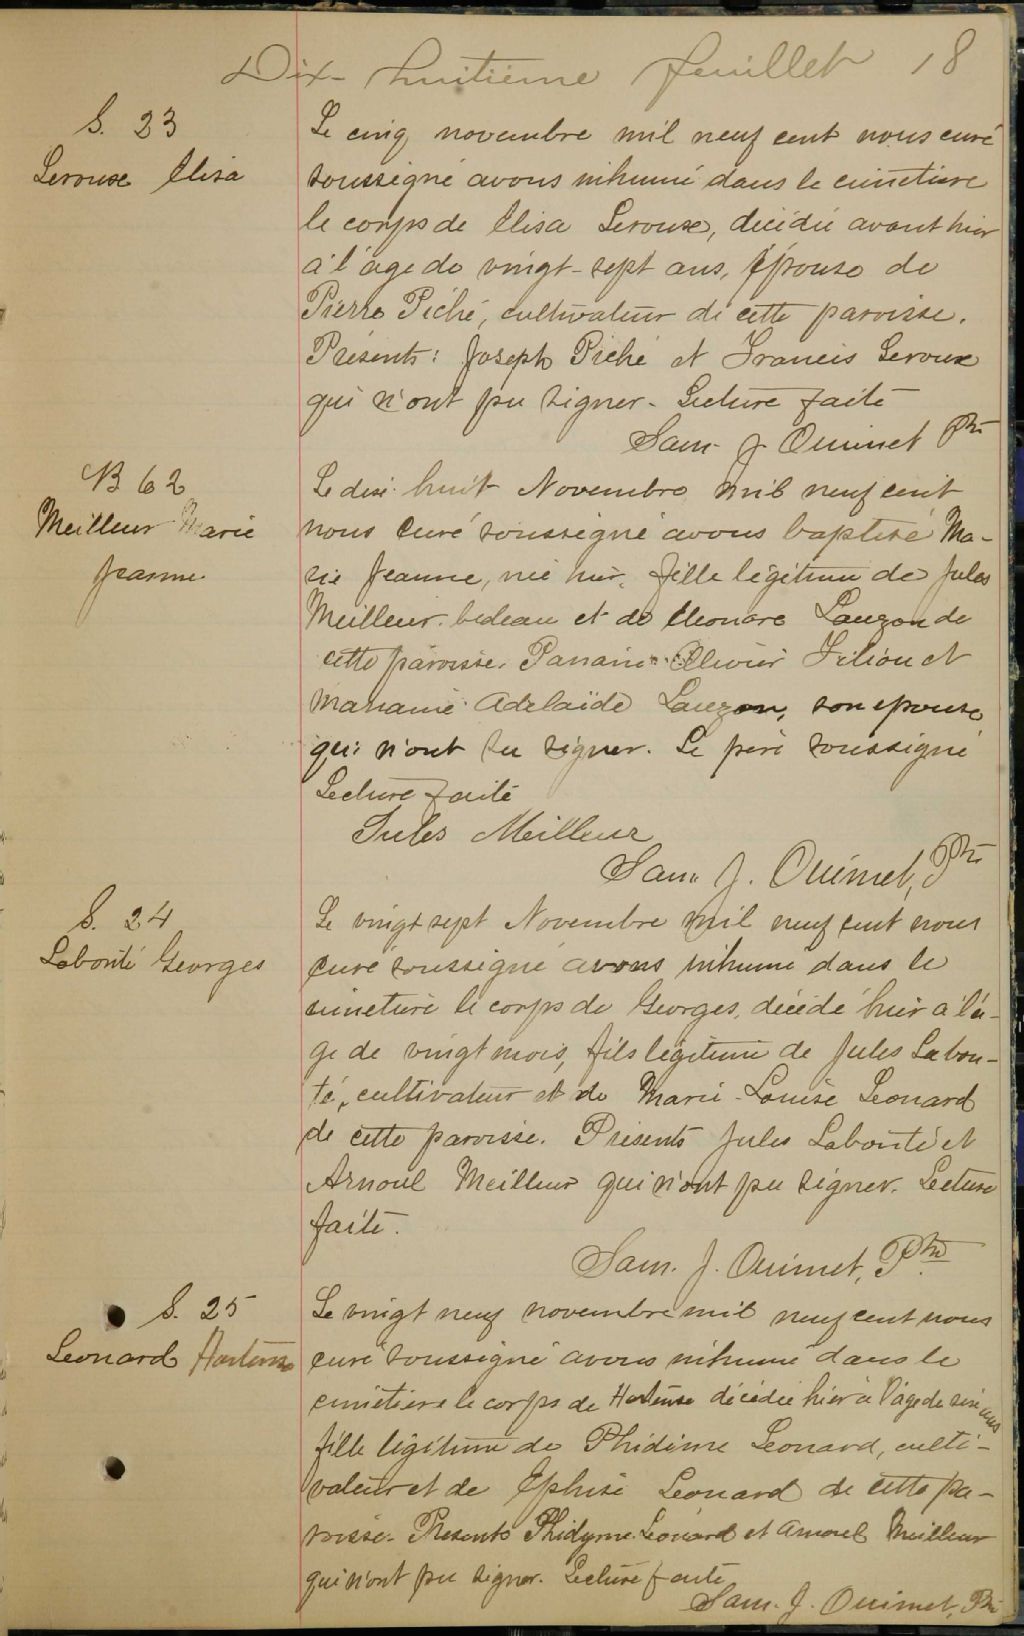 Dix-huitième feuillet 18
S. 23
Leroux Elisa
Le cinq novembre mil neuf cent nous curé
soussigné avons inhumé dans le cimetière
le corps de Elisa Leroux, décédée avant hier
à l'age de vingt-sept ans, Épouse de
Pierre Piché, cultivateur de cette paroisse.
Présents: Joseph Piché et Francis Leroux
qui n'ont pu signer. Lecture faite
Sam. J. Ouimet Ptre
B 62
Meilleur Marie
Jeanne
Le dix huit Novembre mil neuf cent
nous curé soussigné avons baptisé Ma-
rie Jeanne, née hier, fille légitime de Jules
Meilleur bedeau et de Eleonore Lauzon de
cette paroisse. Parrain Olivier Filion et
marraine Adelaïde Lauzon, son epouse
qui n'ont su signer. Le père soussigné
Lecture faite
Jules Meilleur
Sam. J. Ouimet, Ptre
S. 24
Labonté Georges
Le vingt sept Novembre mil neuf cent nous
curé soussigné avons inhumé dans le
cimetière le corps de Georges, décédé hier à l'â-
ge de vingt mois, fils légitime de Jules Labon-
té, cultivateur et de Marie-Louise Leonard
de cette paroisse. Présents Jules Labonté et
Arnoul Meilleur qui n'ont pu signer. Lecture
faite.
Sam. J. Ouimet, Ptre
S. 25
Leonard Hortense
Le vingt neuf novembre mil neuf cent nous
curé soussigné avons inhumé dans le
cimetière le corps de Hortense décédée hier à l'âge de six ans
fille légitime de Phidime Leonard, culti-
vateur et de Ephise Leonard de cette pa-
roisse. Presents Phidyme Léonard et Arnoul Meilleur
qui n'ont pu signer. Lecture faite
Sam. J. Ouimet, Ptre